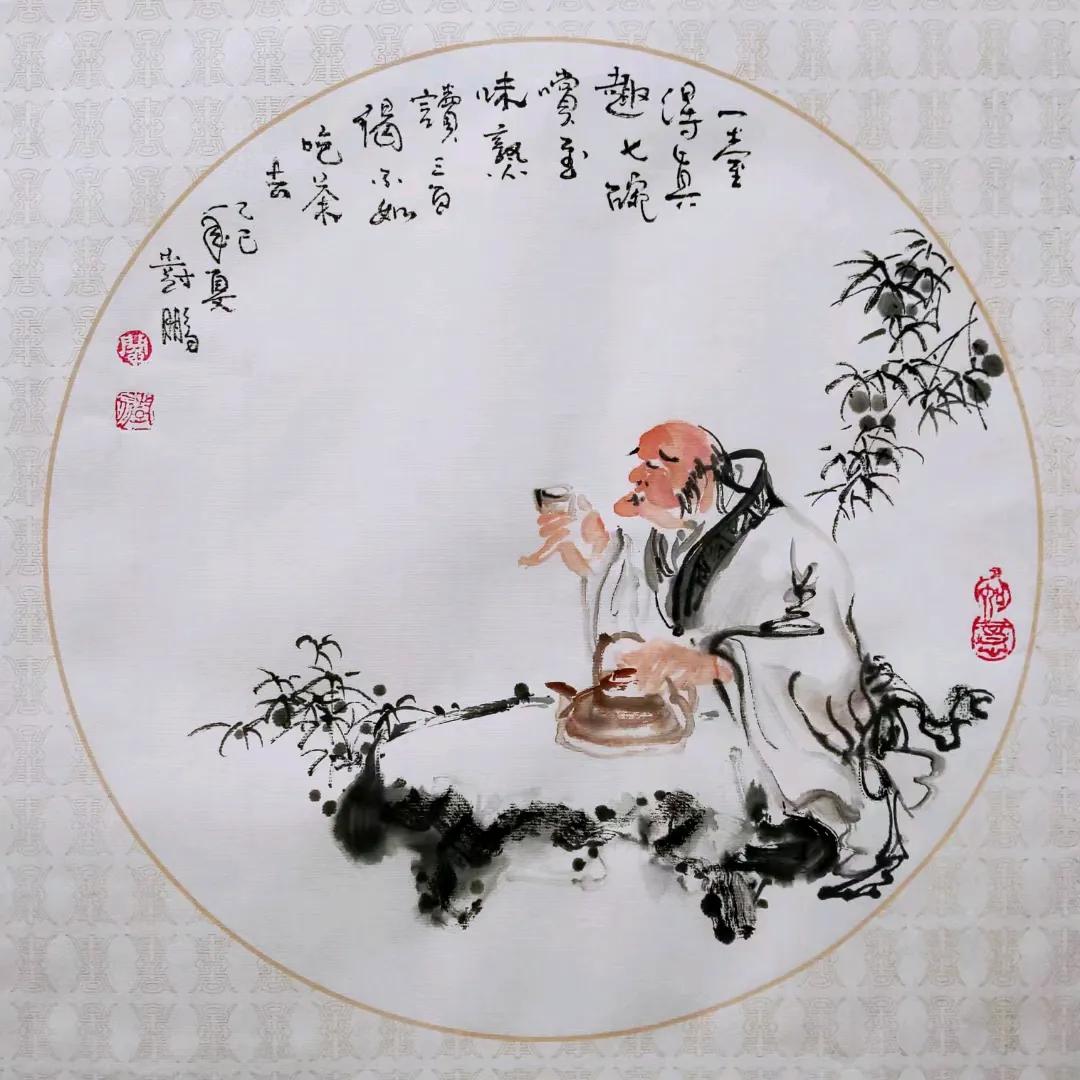 一壺
得真
趣七碗
嚐至
味熟
讀三百
偈不如
吃茶
去
乙巳
年夏
鵬